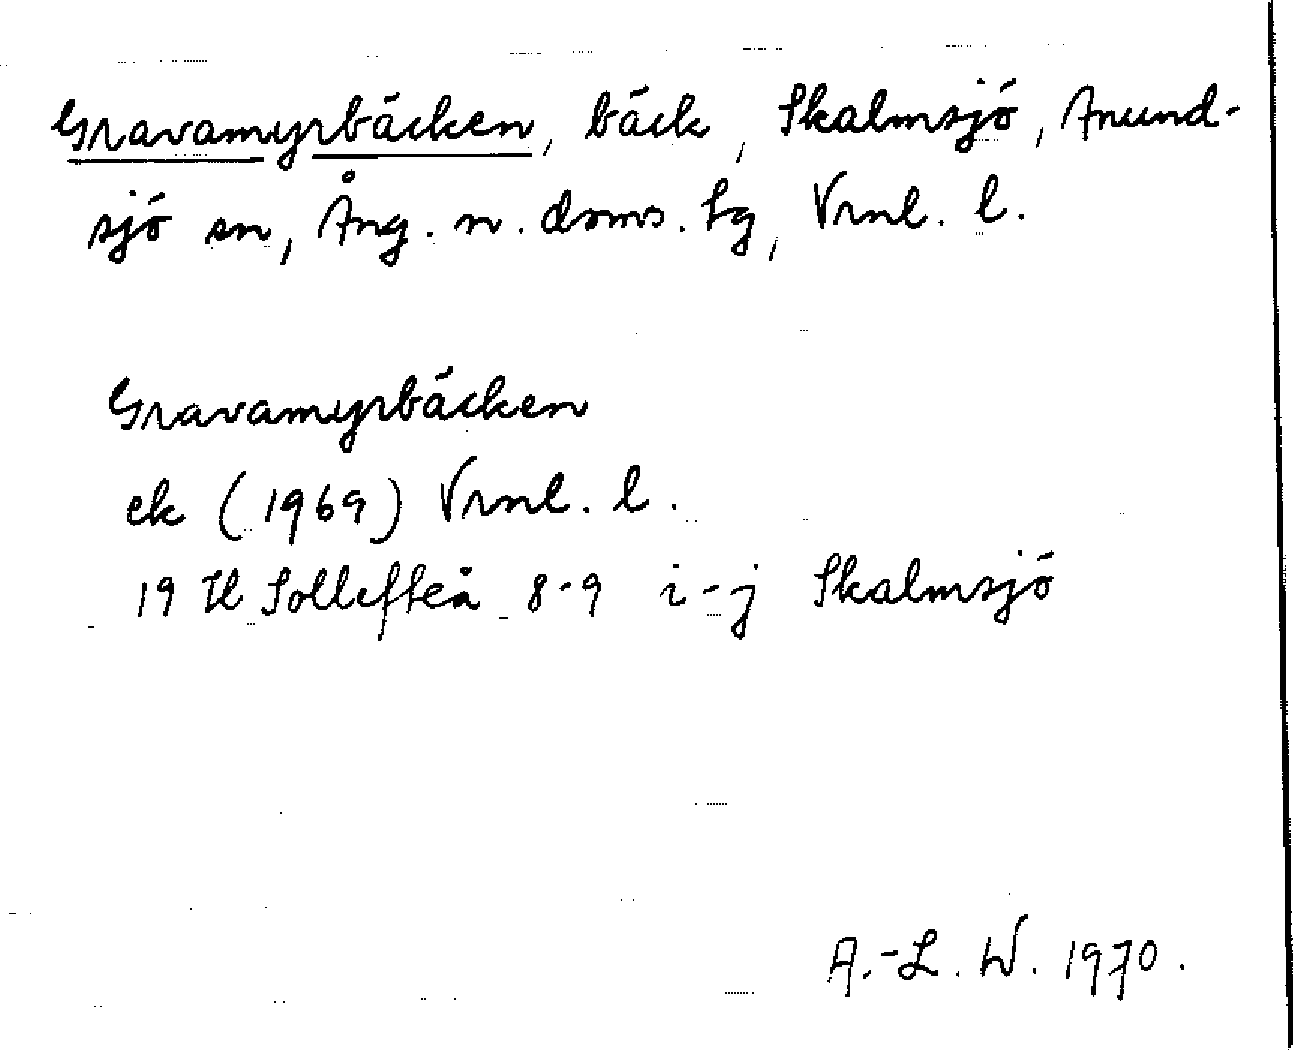 Gravamyrbäcken, bäck, Skalmsjö, Anund-
sjö sn, Ång. n. doms. tg, Vrnl. l.
Gravamyrbäcken
ek (1969) Vrnl. l.
19 H Sollefteå 8-9 i-j Skalmsjö
A.-L. W. 1970.